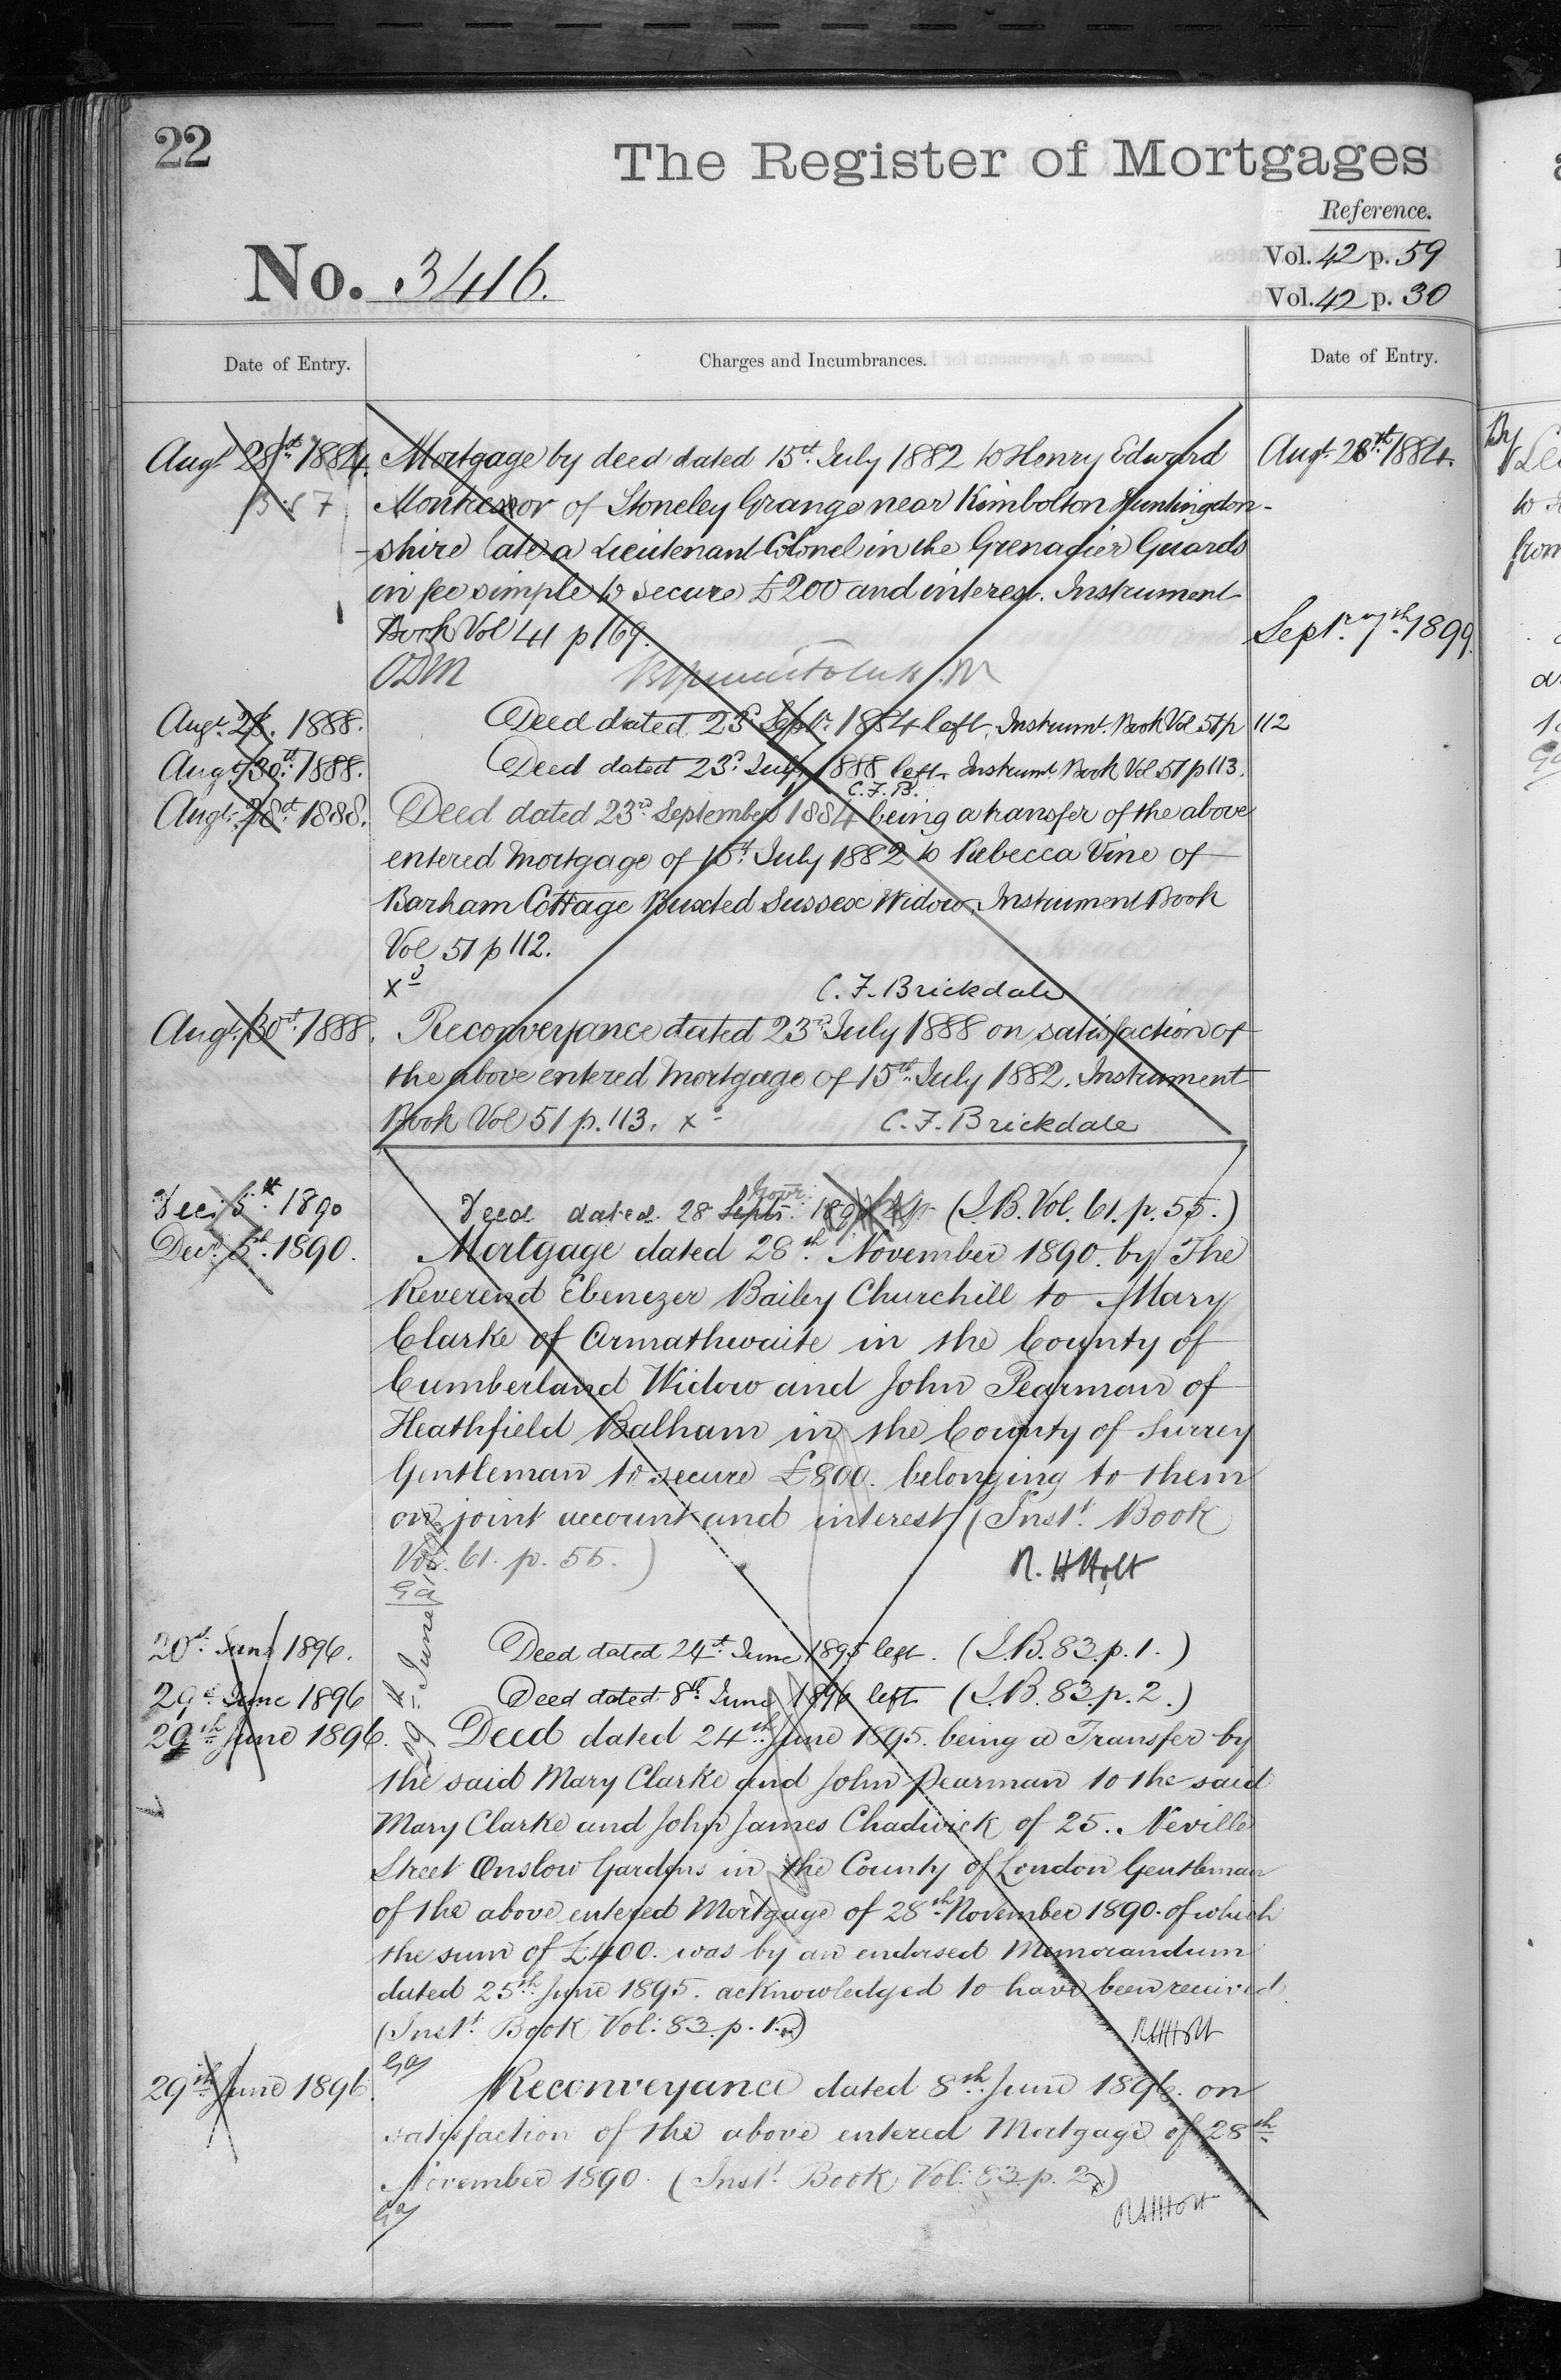 22
The Register of Mortgages
Reference.
Vol. 42 p. 59
No. 3416.
Vol. 42 p. 30
Date of Entry.
Charges and Incumbrances.
Date of Entry.
Augt. 28th 1884. Mortgage by deed dated 15th July 1882 to Henry Edward
Augt. 28th 1884.
Montressor of Stoneley Grange near Kimbolton Huntingdon-
-shire late a Lieutenant Colonel in the Grenadier Guards
in fee simple to secure £200 and interest. Instrument
Book Vol 41 p 169.
Septr. 7th 1899.
ODM
Augt. 28. 1888. Deed dated 23d Septr. 1884 left. Instrumt. Book Vol 51 p 112
Augt. 30th 1888. Deed dated 23d July 1888 left. Instrumt. Book Vol 51 p 113.
C.F.B.
Augt. 28th 1888. Deed dated 23rd September 1884 being a transfer of the above
entered Mortgage of 15th July 1882 to Rebecca Vine of
Barham Cottage Buxted Sussex Widow, Instrument Book
Vol 51 p 112.
xd
C. F. Brickdale
Augt. 30th 1888. Reconveyance dated 23rd July 1888 on satisfaction of
the above entered Mortgage of 15th July 1882. Instrument
Book Vol 51 p. 113. xd C. F. Brickdale
Novr.
Dec. 5th 1890 Deed dated 28 Septr. (I.B. Vol. 61. p. 55.)
Decr. 5th 1890. Mortgage dated 28th November 1890. by The
Reverend Ebenezer Bailey Churchill to Mary
Clarke of Armathwaite in the County of
Cumberland Widow and John Pearman of
Heathfield Balham in the County of Surrey
Gentleman to secure £800. belonging to them
on joint account and interest (Inst. Book
Vol. 61. p. 55.)
R. H Holt
Ga
29th June
20th June 1896. Deed dated 24th June 1895 left. (I.B. 83. p. 1.)
29th June 1896 Deed dated 8th June 1896 left (I.B. 83. p. 2.)
29th June 1896. Deed dated 24th June 1895. being a Transfer by
the said Mary Clarke and John Pearman to the said
Mary Clarke and John James Chadwick of 25. Neville
Street Onslow Gardens in the County of London Gentleman
of the above entered Mortgage of 28th November 1890. of which
the sum of £400. was by an endorsed Memorandum
dated 25th June 1895. acknowledged to have been received.
(Inst. Book Vol: 83. p. 1.)
RHHolt
Ga
29th June 1896. Reconveyance dated 8th June 1896. on
satisfaction of the above entered Mortgage of 28th
November 1890. (Inst. Book Vol: 83. p. 2.)
Ga
RHHolt